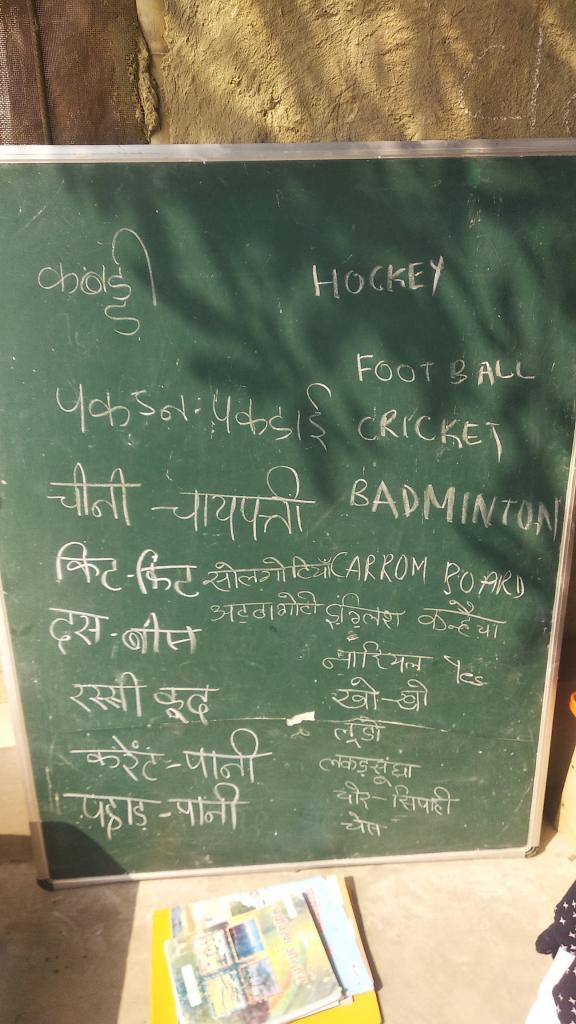 कबड्डी
HOCKEY
FOOT BALL
पकडन-पकडाई
CRICKET
चीनी - चायपत्ती
BADMINTON
किट-किट
सोलगोटियाँ
CARROM BOARD
अट्ठागोटी
इंग्लिश कन्हैया
दस-बीस
नारियल Yes
रस्सी कूद
खो-खो
लूडो
करेंट-पानी
लकड़सूंघा
पहाड़-पानी
चोर-सिपाही